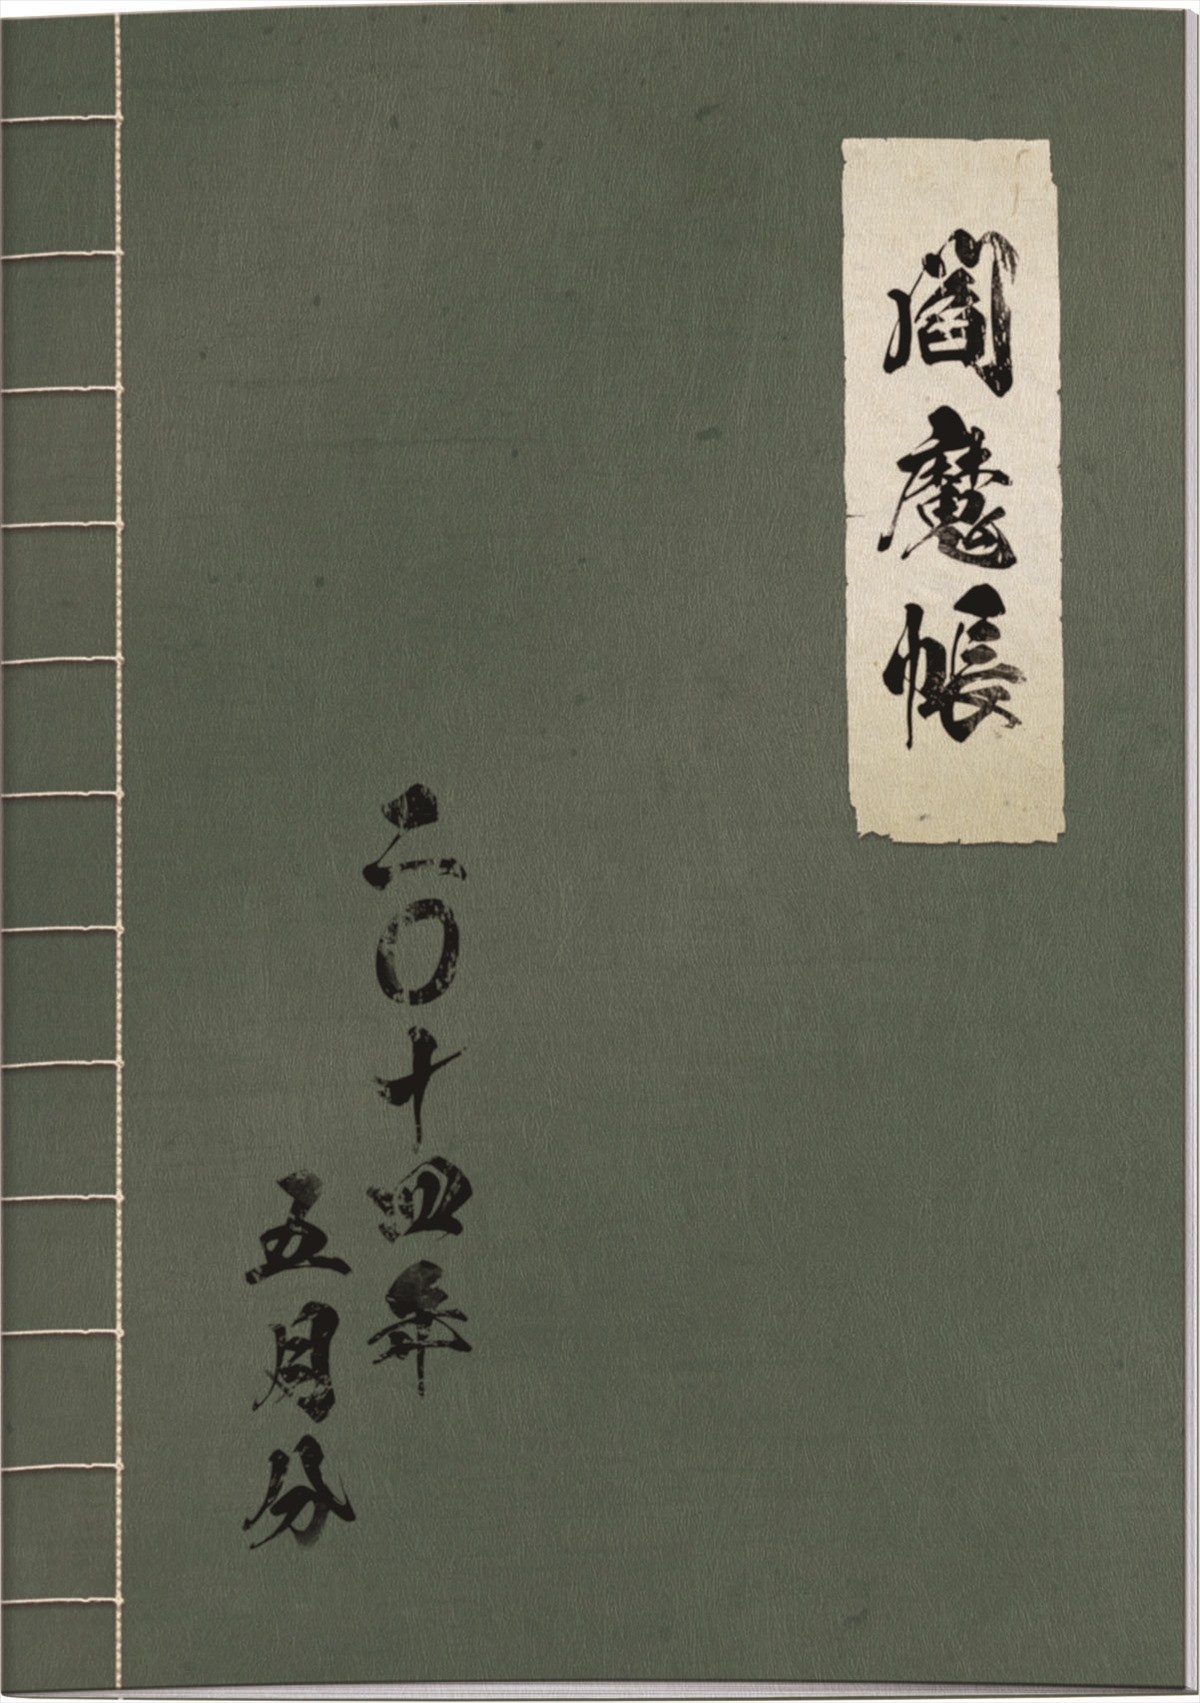 閻魔帳
二〇十四年
五月分